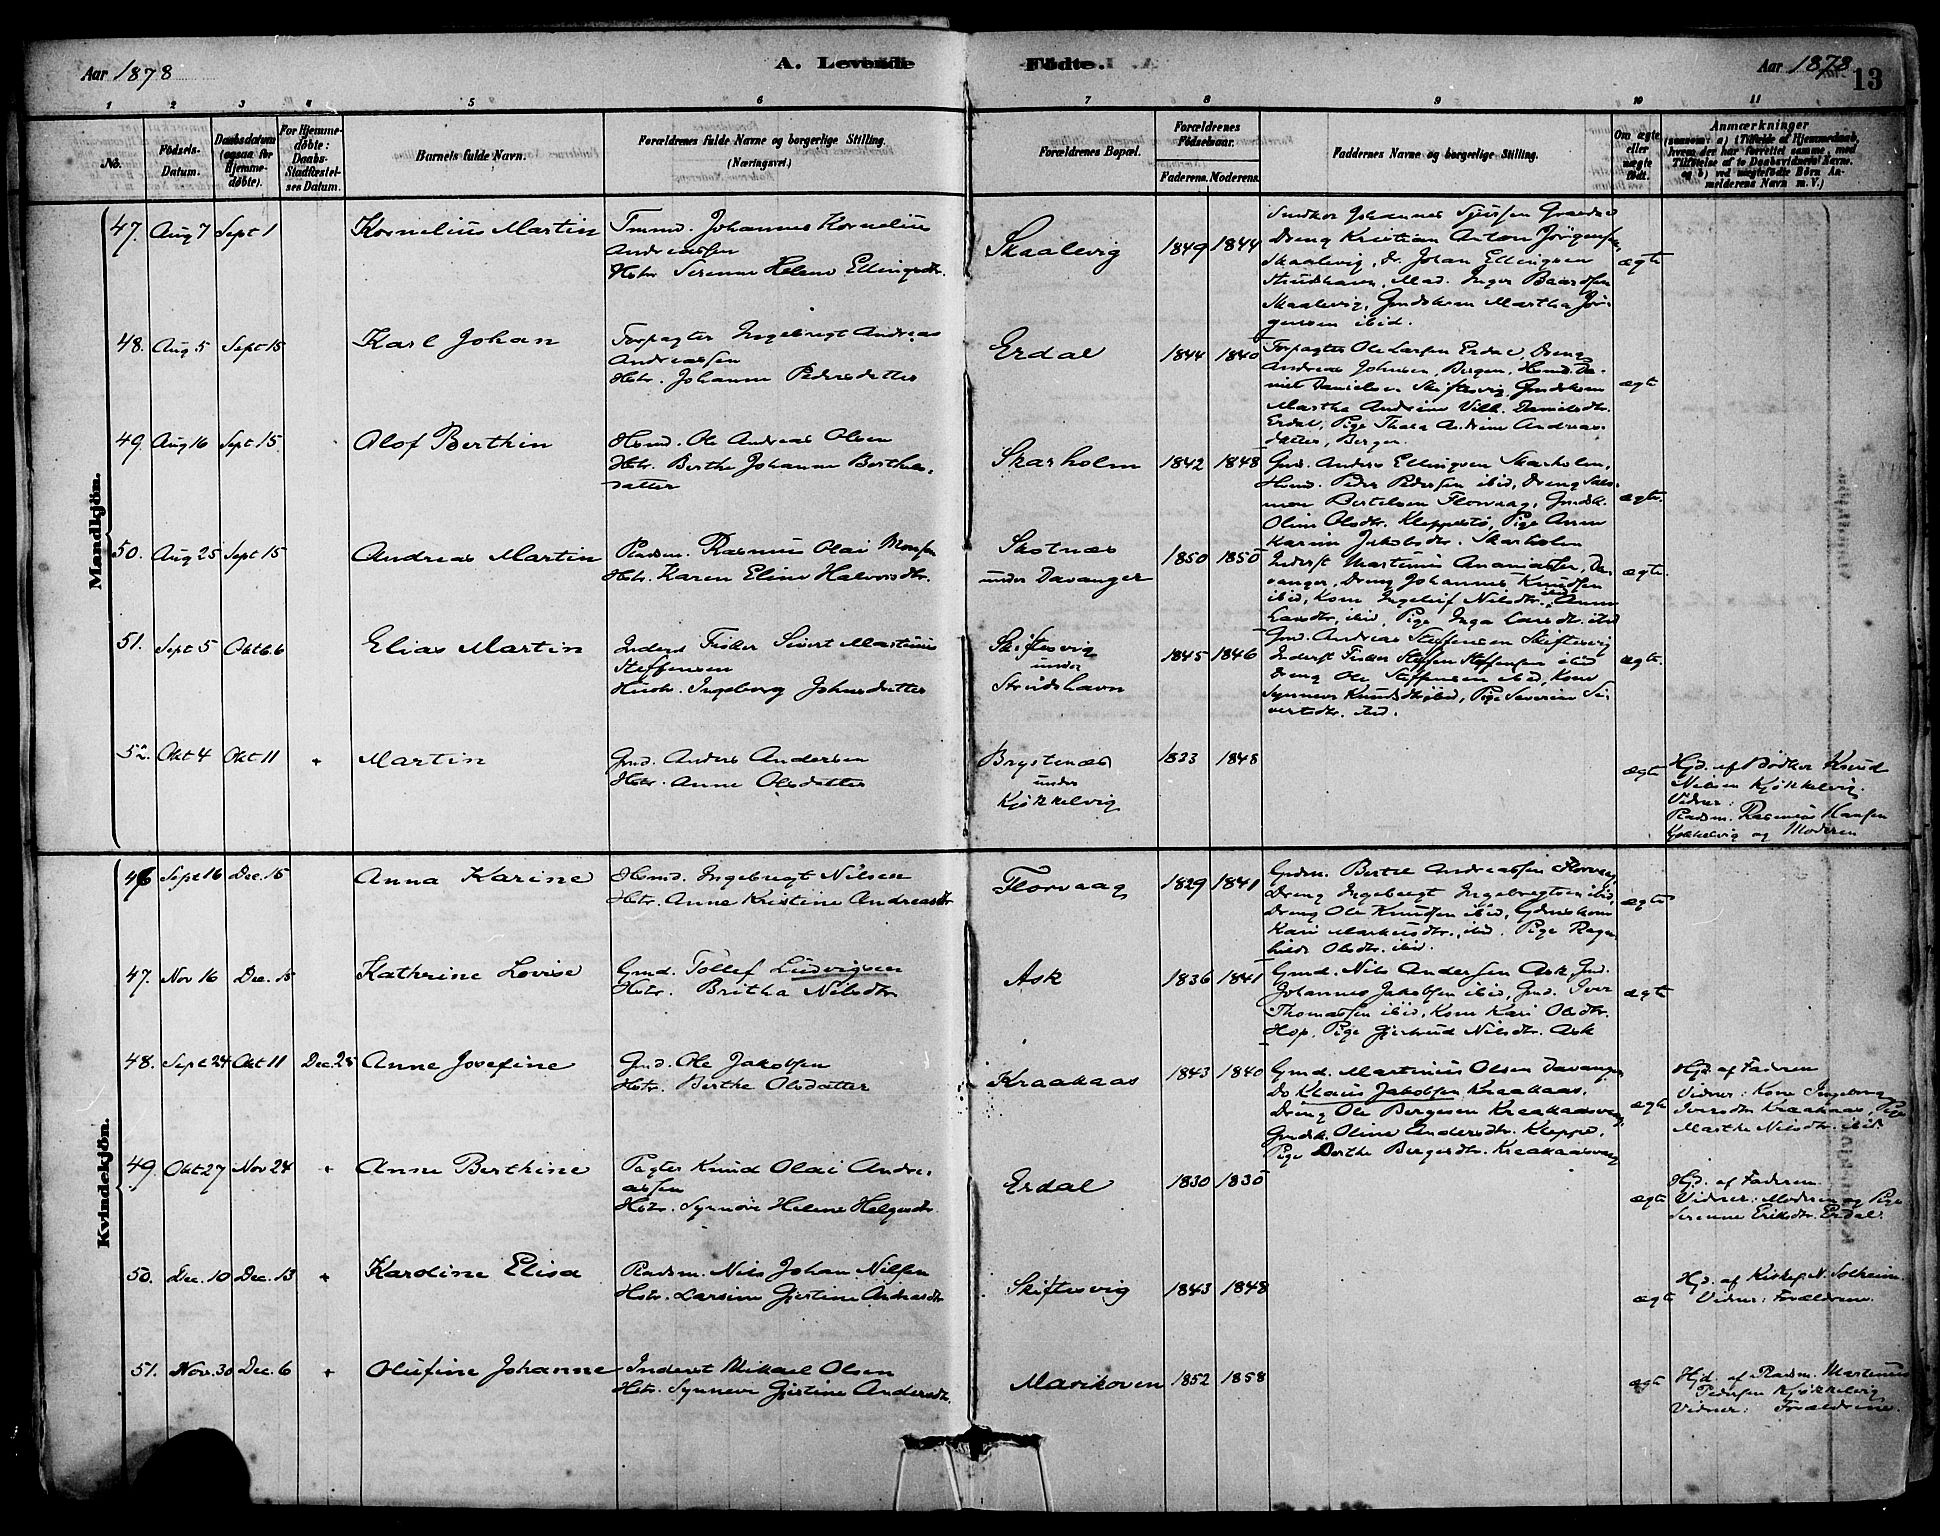 Aar 1878
A. Levende
Fødte.
Aar 1878
13
1 2 3 4 5 6 7 8 9 10 11
No.
Fødsels-
Datum.
Daabsdatum
(ogsaa for
Hjemme-
døbte).
For Hjemme-
døbte:
Daabs-
Stadfæstel-
ses Datum.
Barnets fulde Navn.
Forældrenes fulde Navne og borgerlige Stilling.
(Næringsvei.)
Forældrenes Bopæl.
Forældrenes
Fødselsaar.
Faderens. Moderens.
Faddernes Navne og borgerlige Stilling.
Om ægte
eller
uægte
født.
Anmærkninger
(saasom: a) i Tilfælde af Hjemmedaab,
hvem der har forrettet samme, med
Tilføielse af to Daabsvidners Navne,
og b) ved uægtefødte Børn An-
melderens Navn m. V.)
Mandkjön.
47. Aug 7 Sept 1 Kornelius Martin
Johannes Kornelius
Andreassen
Hstr. Serenne Helene Ellingsdtr.
Skaalevig 1849 1844
Johannes
Dreng Kristian Anton Jörgensen
Skaalevig, Dr. Johan Ellingsen
Strudshavn, Mad. Inger Baardsen
Skaalevig, Martha Jör-
gensen ibid.
ægte
48. Aug 5 Sept 15 Karl Johan
Forpagter Ingebregt Andreas
Andreassen
Hstr. Johanne Pedersdatter
Erdal 1844 1840
Forpagter Ole Larsen Erdal, Dreng
Andreas Johnsen, Bergen, Hsmd. Da-
niel Danielsen Skiftesvig, Gmdskone
Martha Andrine Vilh. Danielsdtr.
Erdal, Pige Thala Andrine Andreas-
datter, Bergen.
ægte
49. Aug 16 Sept. 15. Olof Berthin
Hsmd. Ole Andreas Olsen
Hstr. Berthe Johanne Berthel-
datter
Skarholm 1842 1848
Gmd. Anders Ellingsen Skarholm,
Hsmd. Peder Pedersen ibid, Dreng Salo-
mon Bertelsen Florvaag, Gmdsk.
Oline Olsdtr. Kleppestø, Pige Anne
Karine Jakobsdtr. Skarholm
ægte
50. Aug 25 Sept. 15 Andreas Martin
Pladsm. Rasmus Olai Monsen
Hstr. Karen Eline Halvorsdtr.
Skotnæs
under Davanger
1850 1850
Inderst Martinus Da-
vanger, Dreng Johannes Knudsen
ibid, Kone Ingeleif Nilsdtr. ibid, Anne
Larsdtr. ibid, Pige Inga Larsdtr. ibid
ægte.
51. Sept 5 Okt 6 Elias Martin
Inderst Fisker Sivert Martinus
Steffensen
Hustr. Ingeborg Johnsdatter
Skiftesvig
under
Strudshavn
1845 1846
Gmd. Andreas Steffensen Skiftesvig
Inderst Fisker Steffen Steffensen ibid
Dreng Ole Steffensen ibid, Kone
Synneve Knudsdtr. ibid, Pige Severine Si-
vertsdtr. ibid.
ægte.
52. Okt 4 Okt 11 + Martin
Gmd. Anders Andersen
Hstr. Anne Olsdatter
Brystenæs
under
Kjökkelvig
1833 1848
ægte
Hjd. af Bödker Knud
Nilsen Kjökkelvig.
Vidner:
Pladsm. Rasmus Hansen
Kjökkelvig og Moderen
Kvindekjön.
46 Sept 16 Dec. 15 Anna Karine
Hsmd. Ingebregt Nilsen
Hstr. Anne Kristine Andreasdtr
Florvaag 1829 1841
Gmdm. Bertel Andreassen Florvaag
Dreng Ingebregt Ingebregtsen ibid,
Dreng Ole Knudsen ibid, Gmdskone
Kari Markusdtr. ibid. Pige Ragn-
hilde Olsdtr. ibid.
ægte
47. Nov 16 Dec. 15 Kathrine Lovise
Gmd. Tollef Ludvigsen
Hstr. Britha Nilsdtr
Ask 1836 1841
Gmd. Nils Andersen Ask, Gmd.
Johannes Jakobsen ibid, Gmd. Iver
Thomassen ibid, Kone Kari Olsdtr.
Hop, Pige Gjertrud Nilsdtr. Ask
ægte
48. Sept 24 Okt 11 Dec. 25 Anne Josefine
Gmd. Ole Jakobsen
Hstr. Berthe Olsdatter
Kraakaas 1843 1840
Gmd. Martinus Olsen Davanger
Do Klaus Jakobsen Kraakaas,
Dreng Ole Bergesen Kraakaasvaag
Gmdsk. Oline Andersdtr. Kleppe,
Pige Berthe Bergesdtr. Kraakaasvaag
ægte
Hjd. af Faderen
Vidner: Kone Ingeborg
Iversdtr Kraakaas, Pige
Marthe Nilsdtr. ibid
49. Okt 27 Nov 24 + Anne Berthine
Pagter Knud Olai Andre-
assen
Hstr. Synnöve Helene Helgesdtr.
Erdal 1830 1835
ægte
Hjd. af Faderen.
Vidner: Moderen og Pige
Serenne Eriksdtr. Erdal.
50. Dec. 10 Dec. 13 + Karoline Elisa
Pladsm. Nils Johan Nilsen
Hstr. Larsine Gjertine Andreasdtr
Skiftesvig 1843 1848
ægte
Hjd. af Kirkes. N. Solheim.
Vidner: Forældrene.
51. Nov. 30 Dec. 6 + Olufine Johanne
Inderst Mikael Olsen
Hstr. Synneve Gjertine Andersdtr.
Marikoven 1852 1858
ægte
Hjd. af Pladsm. Martinus
Pedersen Kjökkelvig
Vidner: Forældrene.